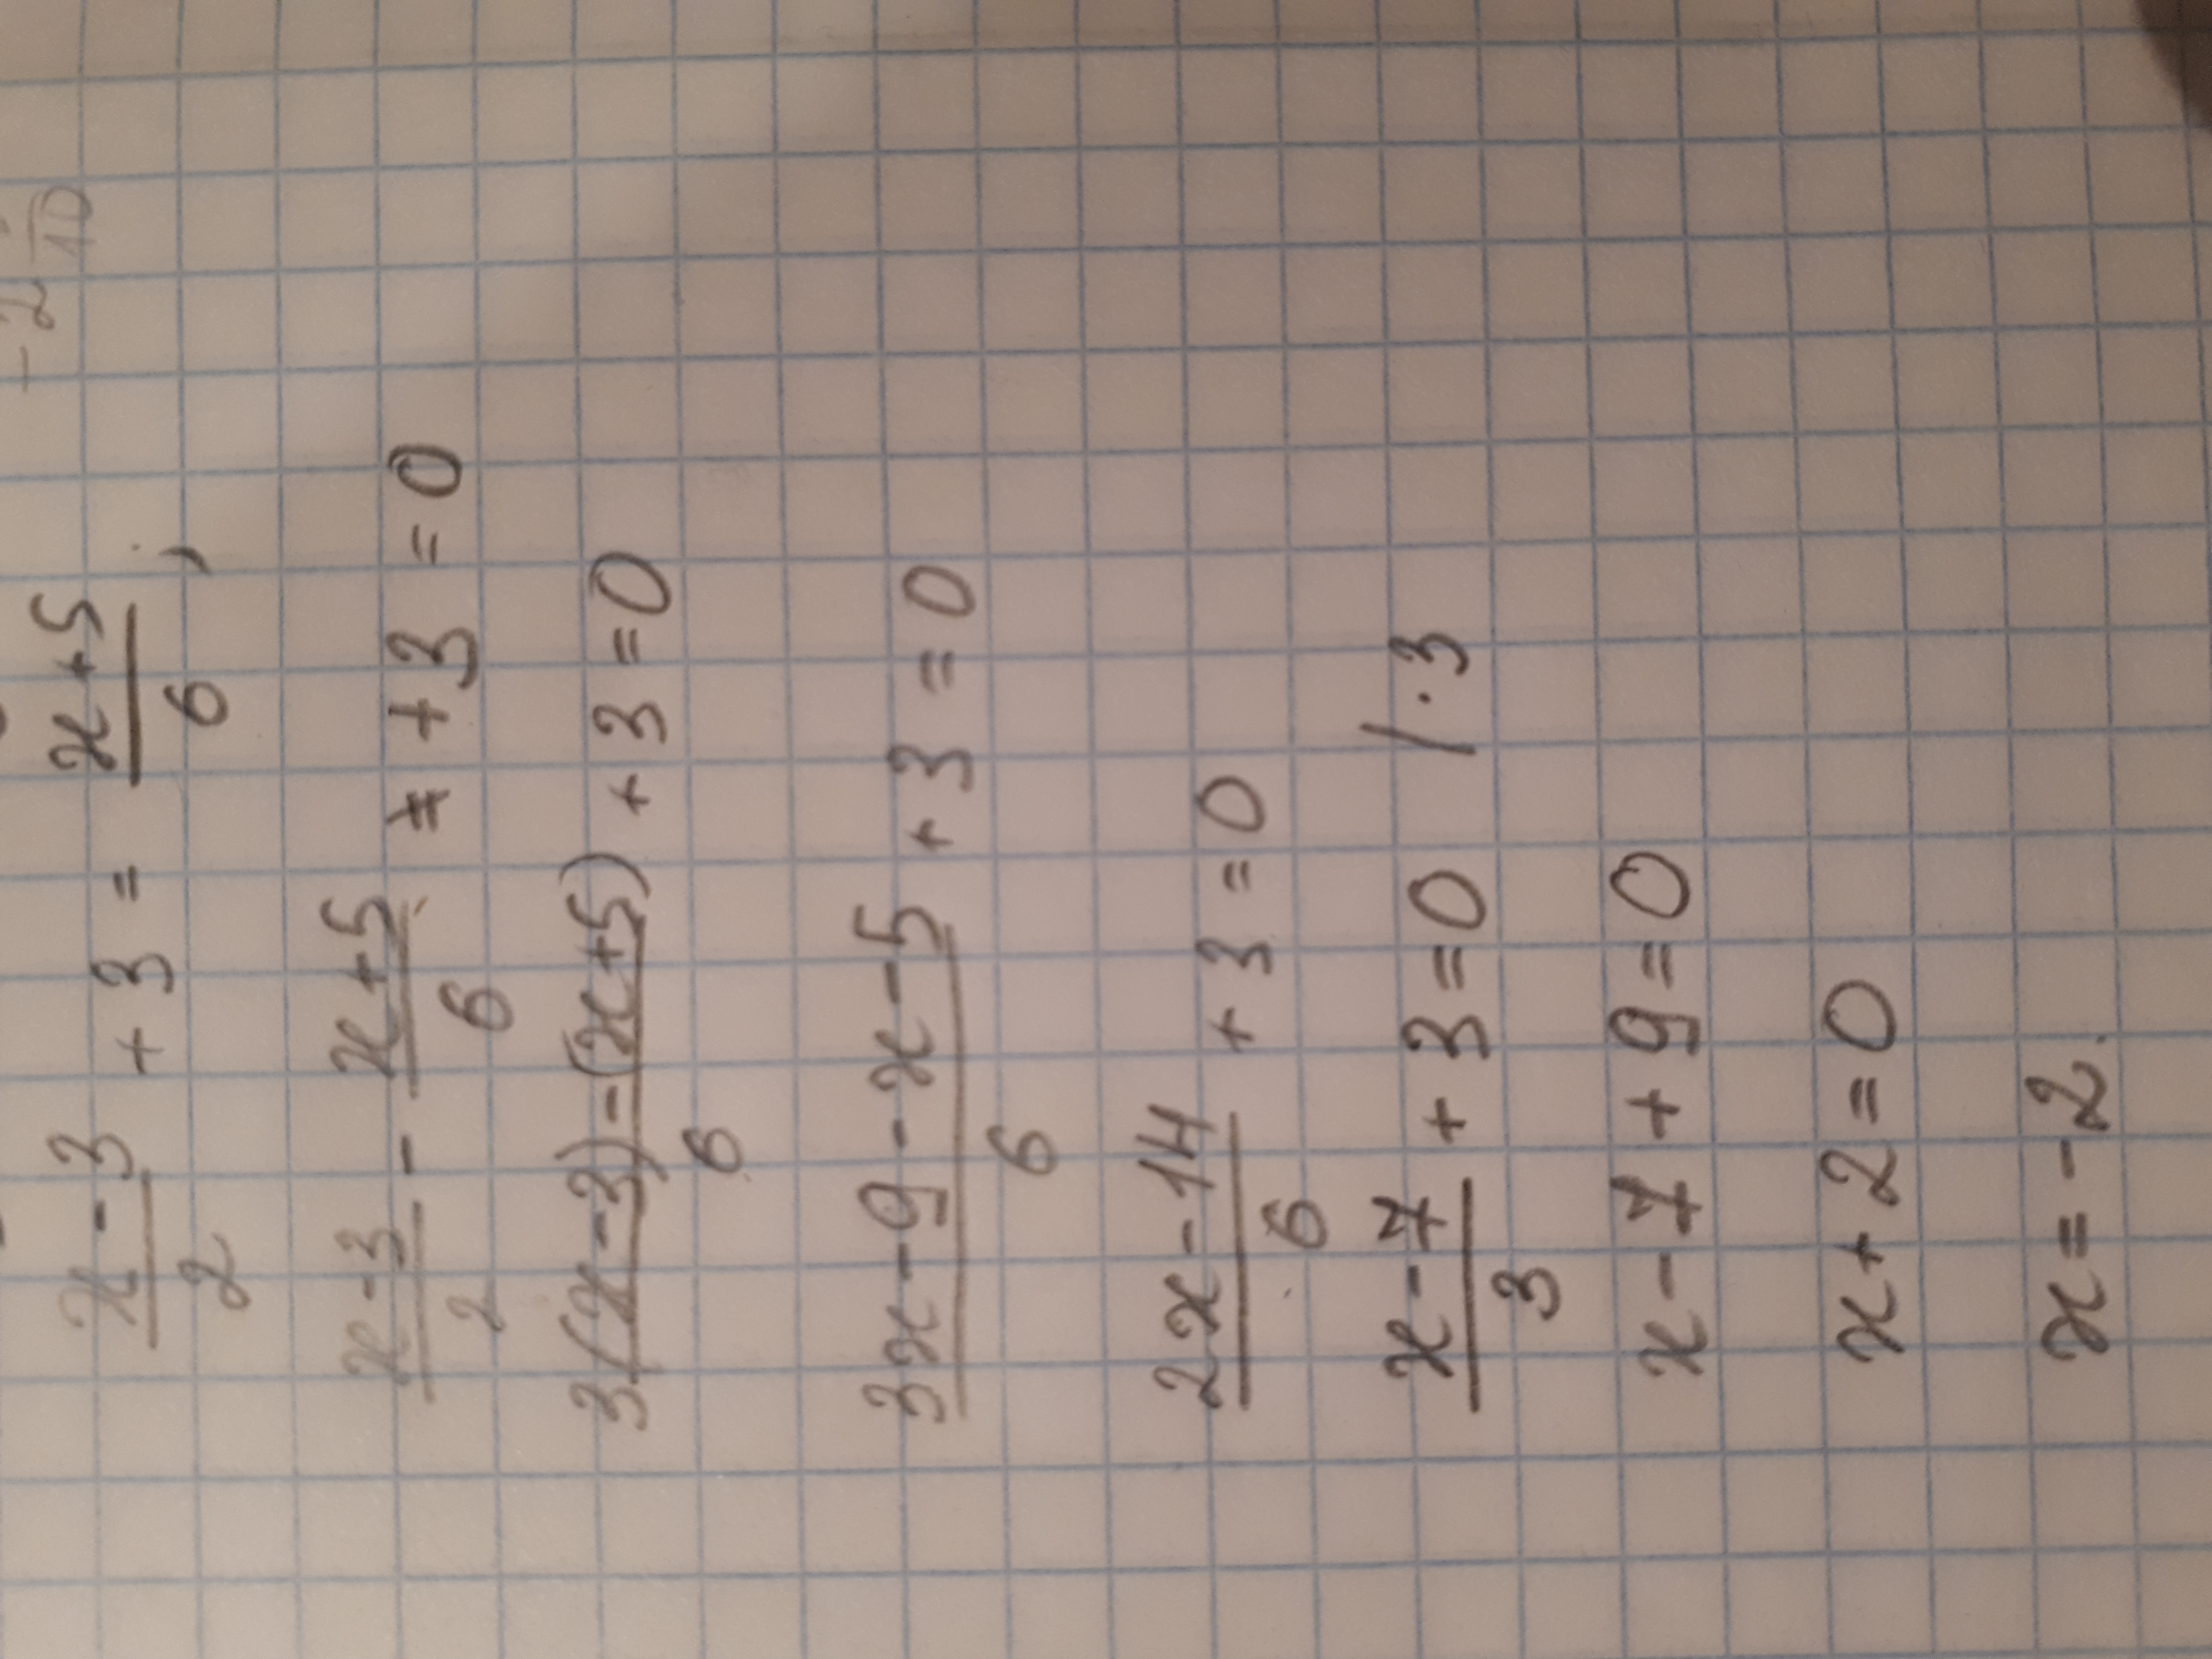 -2 /10
(x-3)/2 + 3 = (x+5)/6,
(x-3)/2 - (x+5)/6 + 3 = 0
(3(x-3)-(x+5))/6 + 3 = 0
(3x-9-x-5)/6 + 3 = 0
(2x-14)/6 + 3 = 0
(x-7)/3 + 3 = 0 / · 3
x - 7 + 9 = 0
x + 2 = 0
x = -2.